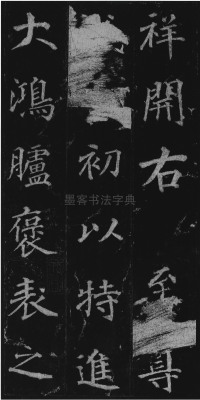 祥開右至尋
初以特進
大鴻臚褒表之
墨客书法字典